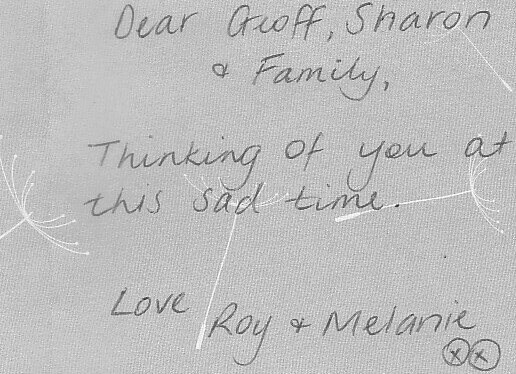 Dear Geoff, Sharon
& Family,
Thinking of you at
this sad time.
Love Roy & Melanie
xx